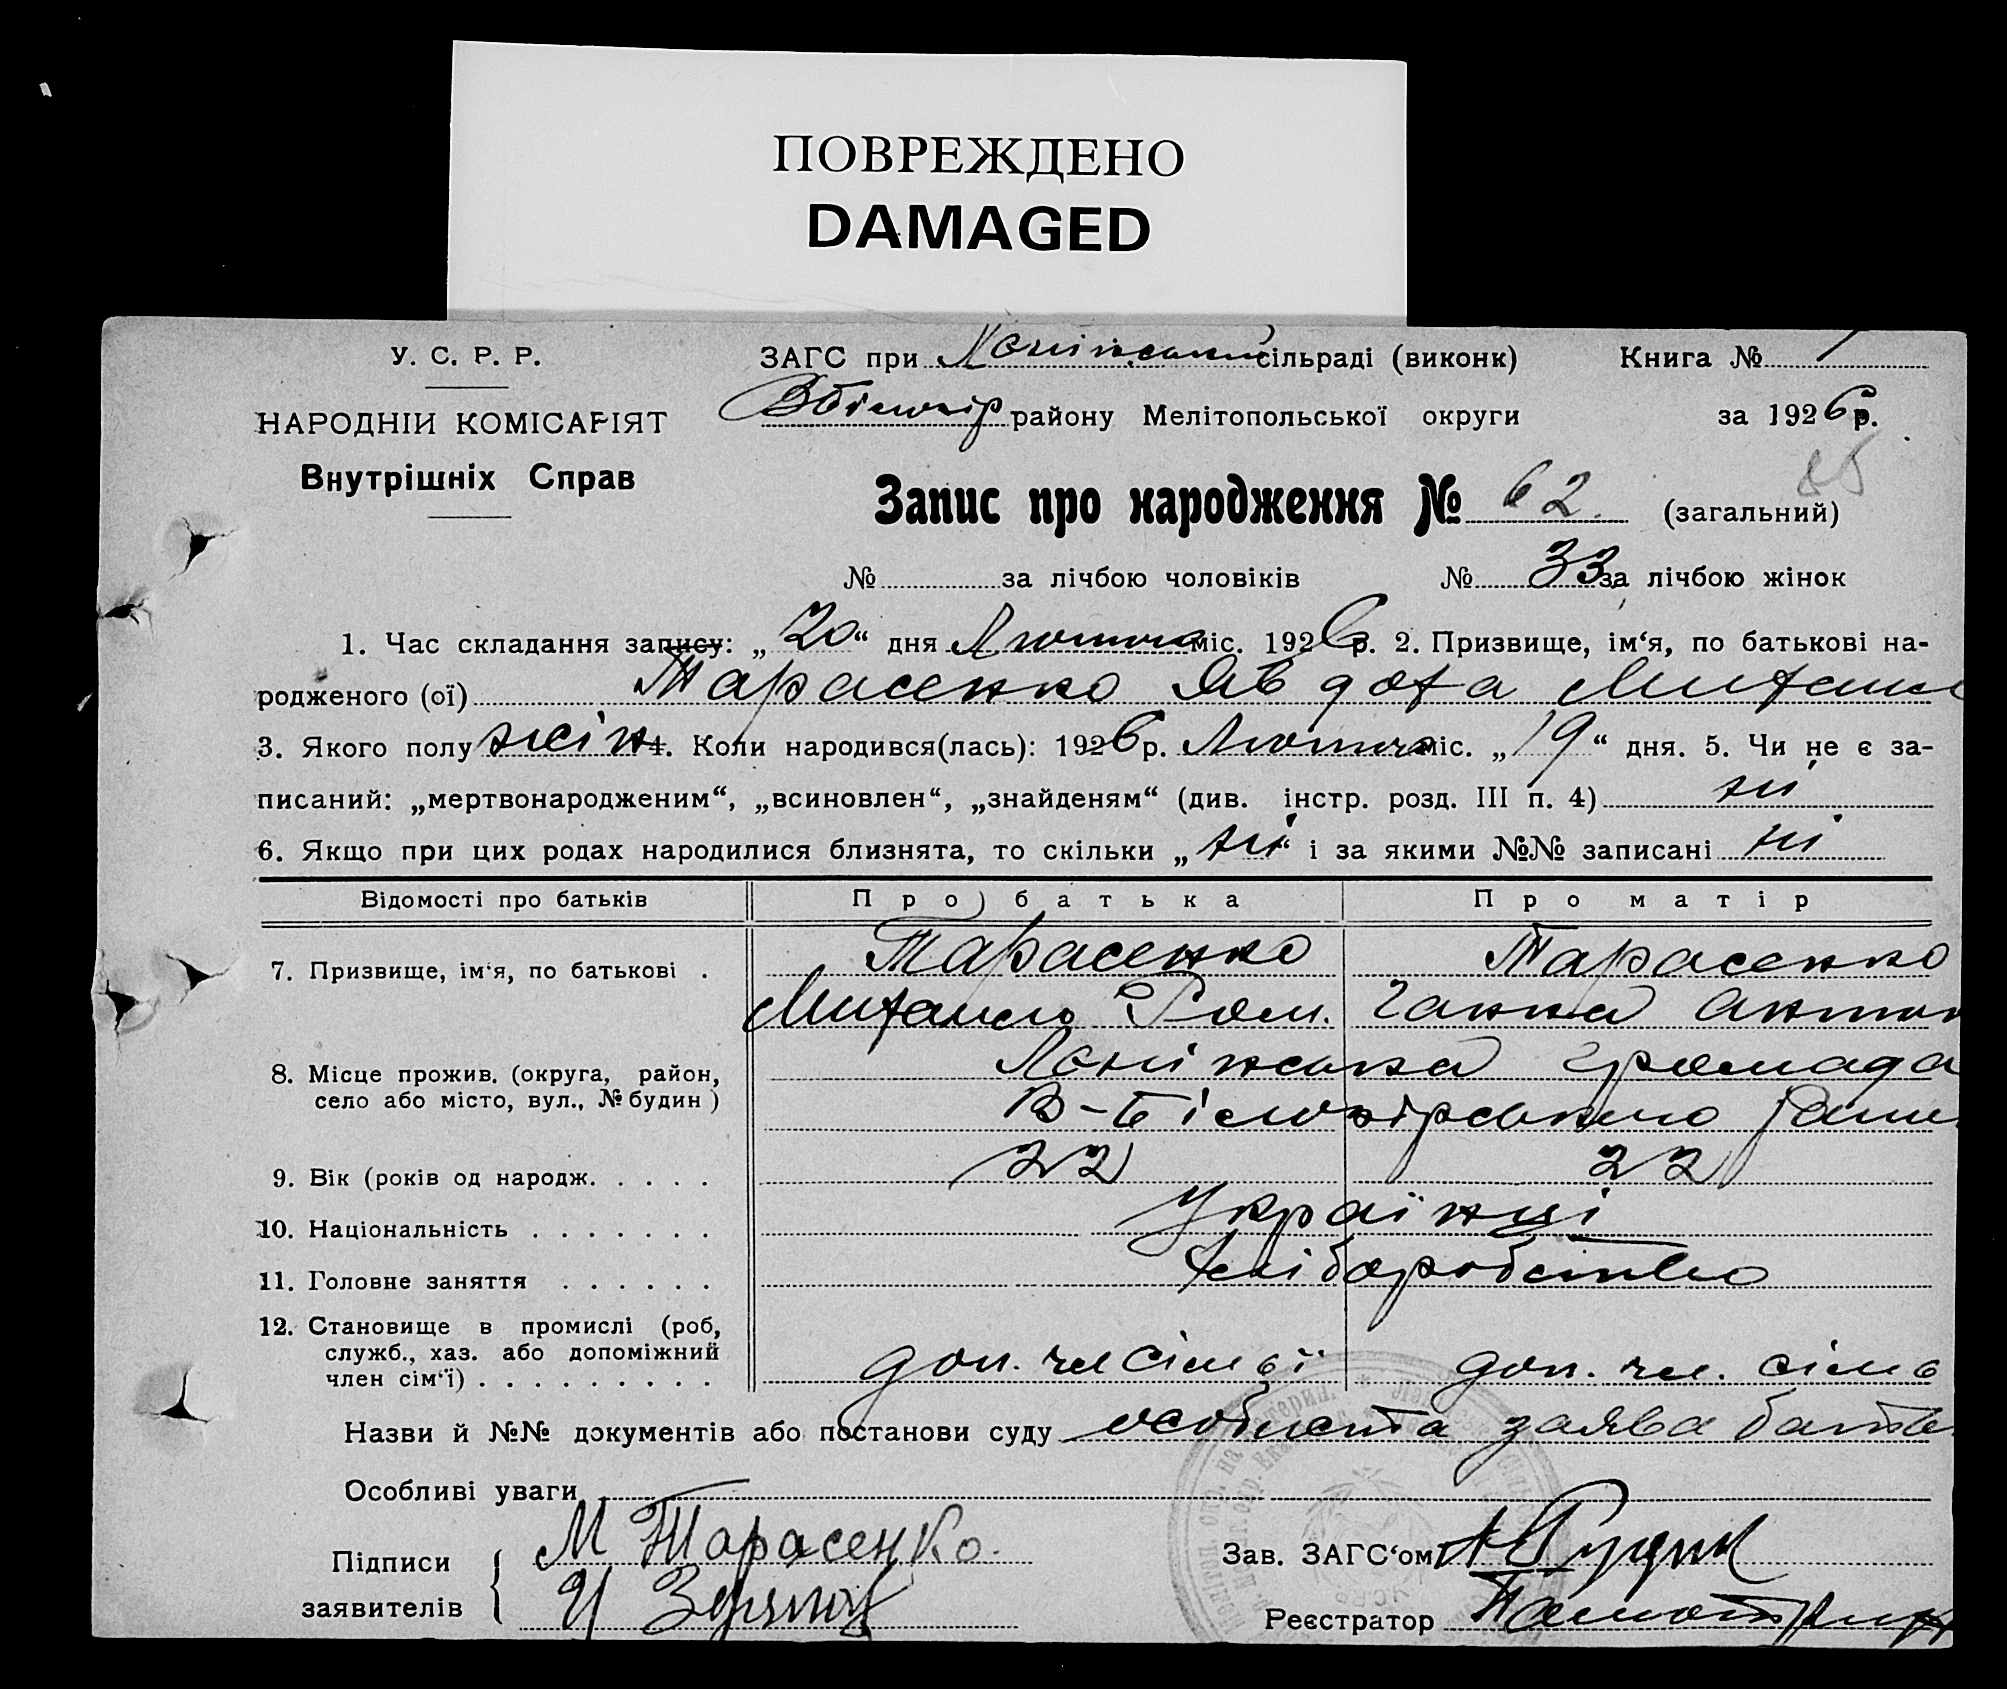 ПОВРЕЖДЕНО
DAMAGED
У. С. Р. Р.
ЗАГС при сільраді (виконк) Книга № 1
НАРОДНІЙ КОМІСАРІЯТ
району Мелітопольської округи за 1926 р.
Внутрішніх Справ
Запис про народження № 62. (загальний)
№ за лічбою чоловіків № 33 за лічбою жінок
1. Час складання запису: „20“ дня Лютого міс. 1926 р. 2. Призвище, ім‘я, по батькові на-
родженого (ої) Тарасенко Явдоха Михайл
3. Якого полу жін 4. Коли народився(лась): 1926 р. Лютого міс. „19“ дня. 5. Чи не є за-
писаний: „мертвонародженим“, „всиновлен“, „знайденям“ (див. інстр. розд. III п. 4) ні
6. Якщо при цих родах народилися близнята, то скільки „ні“ і за якими №№ записані ні
Відомості про батьків Про батька Про матір
7. Призвище, ім‘я, по батькові . Тарасенко Тарасенко
Михайло Ром. Ганна Антон
8. Місце прожив. (округа, район, громада
село або місто, вул., № будин) В-Білозірського Райо
9. Вік (років од народж. . . . . 22 22
10. Національність . . . . . . . Українці
11. Головне заняття . . . . . . Хліборобство
12. Становище в промислі (роб,
служб., хаз. або допоміжний
член сім‘ї) . . . . . . . . . доп. чл сімьї доп. чл. сімь
Назви й №№ документів або постанови суду особиста заява батьк
Особливі уваги
Підписи М Тарасенко.
заявителів
Зав. ЗАГС‘ом
Реєстратор